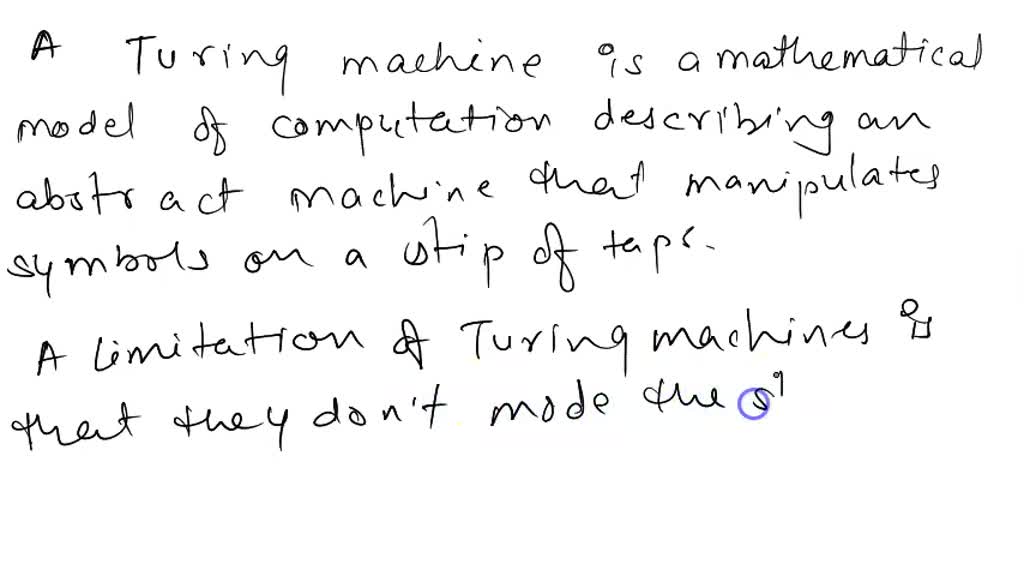 A Turing machine is a mathematical
model of computation describing an
abstract machine that manipulates
symbols on a stip of tape.
A limitation of Turing machines is
that they don't mode the